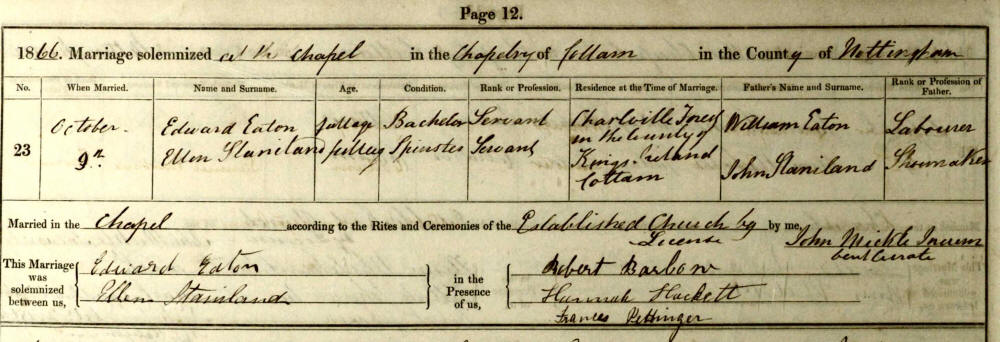 Page 12.
1866. Marriage solemnized at the Chapel in the Chapelry of Cottam in the County of Nottingham
No. When Married. Name and Surname. Age. Condition. Rank or Profession. Residence at the Time of Marriage. Father's Name and Surname. Rank or Profession of Father.
23
October. Edward Eaton full age Bachelor Servant Charlville Forest in the County of Kings Ireland William Eaton Labourer
9th Ellen Staniland full age Spinster Servant Cottam John Staniland Shoemaker
Married in the Chapel according to the Rites and Ceremonies of the Established Church by License by me, John Mickle Incumbent Curate
This Marriage was solemnized between us, Edward Eaton Ellen Stainland in the Presence of us, Robert Barlow Hannah Hackett Frances Pettinger